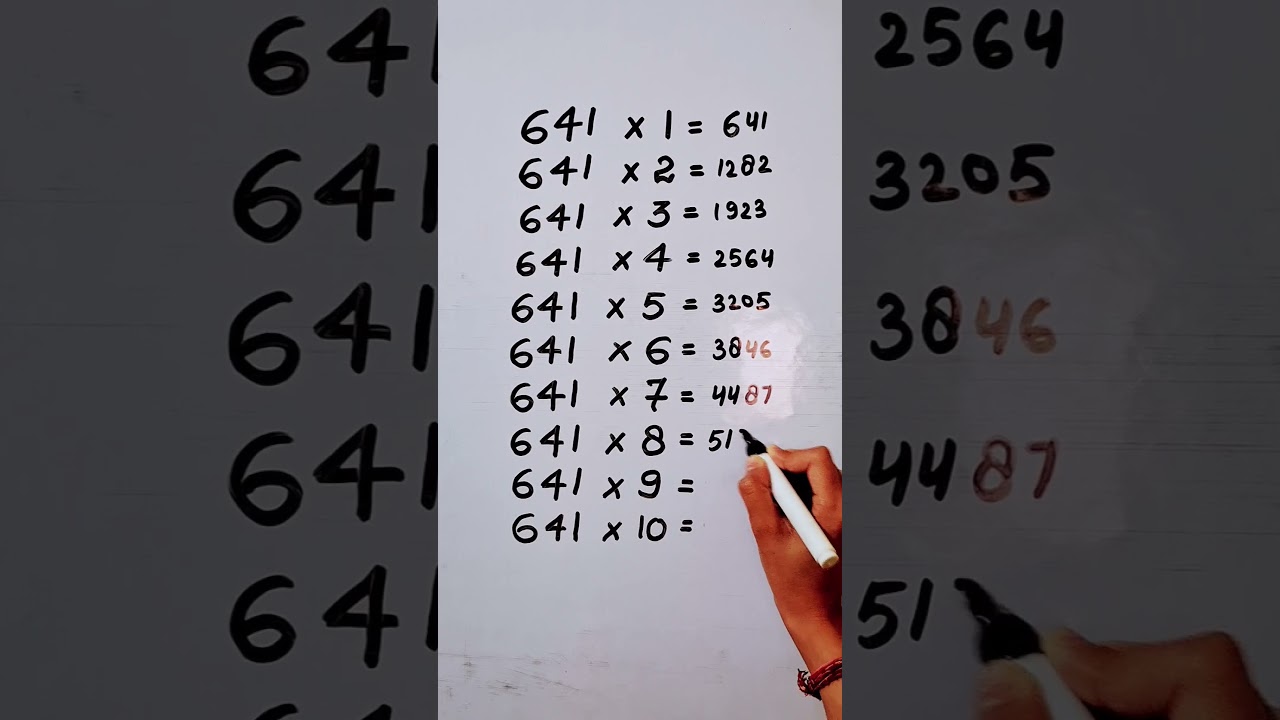 641 x 1 = 641
641 x 2 = 1282
641 x 3 = 1923
641 x 4 = 2564
641 x 5 = 3205
641 x 6 = 3846
641 x 7 = 4487
641 x 8 = 51
641 x 9 =
641 x 10 =